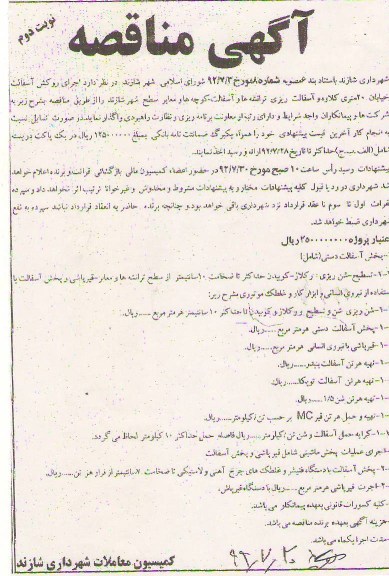 نوبت دوم
آگهی مناقصه
شهرداری شازند باستناد بند ۶ مصوبه شماره ۸ مورخ ۹۲/۷/۳ شورای اسلامی شهر شازند در نظر دارد اجرای روکش آسفالت
خیابان ۲۰ متری کلاوه و آسفالت ریزی ترانشه ها و آسفالت کوچه ها و معابر سطح شهر شازند را از طریق مناقصه بشرح زیر به
شرکت ها و پیمانکاران واجد شرایط و دارای رتبه از معاونت برنامه ریزی و نظارت راهبردی واگذار نماید در صورت تمایل نسبت
به انجام کار آخرین قیمت پیشنهادی خود را همراه یکبرگ ضمانت نامه بانکی بمبلغ ۱۲۵۰۰۰۰۰۰ ریال در یک پاکت دربسته
شامل (الف.ب.ج) حداکثر تا تاریخ ۹۲/۷/۲۸ ارائه و رسید اخذ نمایند.
پیشنهادات رسید رأس ساعت ۱۰ صبح مورخ ۹۲/۷/۳۰ در حضور اعضاء کمیسیون مالی بازگشائی قرائت و برنده اعلام خواهد
شد شهرداری در رد یا قبول کلیه پیشنهادات مختار و به پیشنهادات مشروط و مخدوش و غیر خوانا ترتیب اثر نخواهد داد و سپرده
نفرات اول تا سوم تا عقد قرارداد نزد شهرداری باقی خواهد بود و چنانچه برنده حاضر به انعقاد قرارداد نباشد سپرده به نفع
شهرداری ضبط خواهد شد.
اعتبار پروژه ۲۵۰۰۰۰۰۰۰۰ ریال
-پخش آسفالت دستی (شامل)
۱-۱-تسطیح-شن ریزی - رگلاژ-کوبیدن حداکثر تا ضخامت ۱۰ سانتیمتر از سطح ترانشه ها و معابر-قیرپاشی و پخش آسفالت با
استفاده از نیروی انسانی و ابزار کار و غلطک موتوری بشرح زیر:
-۱-شن ریزی شن و تسطیح و رگلاژ و کوبیدن تا حداکثر ۱۰ سانتیمتر هر متر مربع......ریال.
-۱-پخش آسفالت دستی هر متر مربع......ریال.
-۱-قیرپاشی با نیروی انسانی هر متر مربع......ریال.
-۱-تهیه هر تن آسفالت بیندر......ریال.
-۱-تهیه هر تن آسفالت توپکا......ریال.
-۱-تهیه هر تن شن ۱/۵......ریال.
-۱-تهیه و حمل هر تن قیر MC بر حسب تن/کیلومتر......ریال.
-۱-کرایه حمل آسفالت و شن تن/کیلومتر......ریال فاصله حمل حداکثر ۱۰ کیلومتر لحاظ می گردد.
-اجرای عملیات پخش ماشینی شامل قیرپاشی و پخش آسفالت
-۲-پخش آسفالت با دستگاه فنیشر و غلطک های چرخ آهنی و لاستیکی تا ضخامت ۷ سانتیمتر از قرار هر تن......ریال.
-۲-اجرت قیرپاشی هر متر مربع......ریال با دستگاه قیرپاش.
-کلیه کسورات قانونی بعهده پیمانکار می باشد.
-هزینه آگهی بعهده برنده مناقصه می باشد.
-مدت اجرا یکماه می باشد.
۹۲/۷/۲۰
کمیسیون معاملات شهرداری شازند